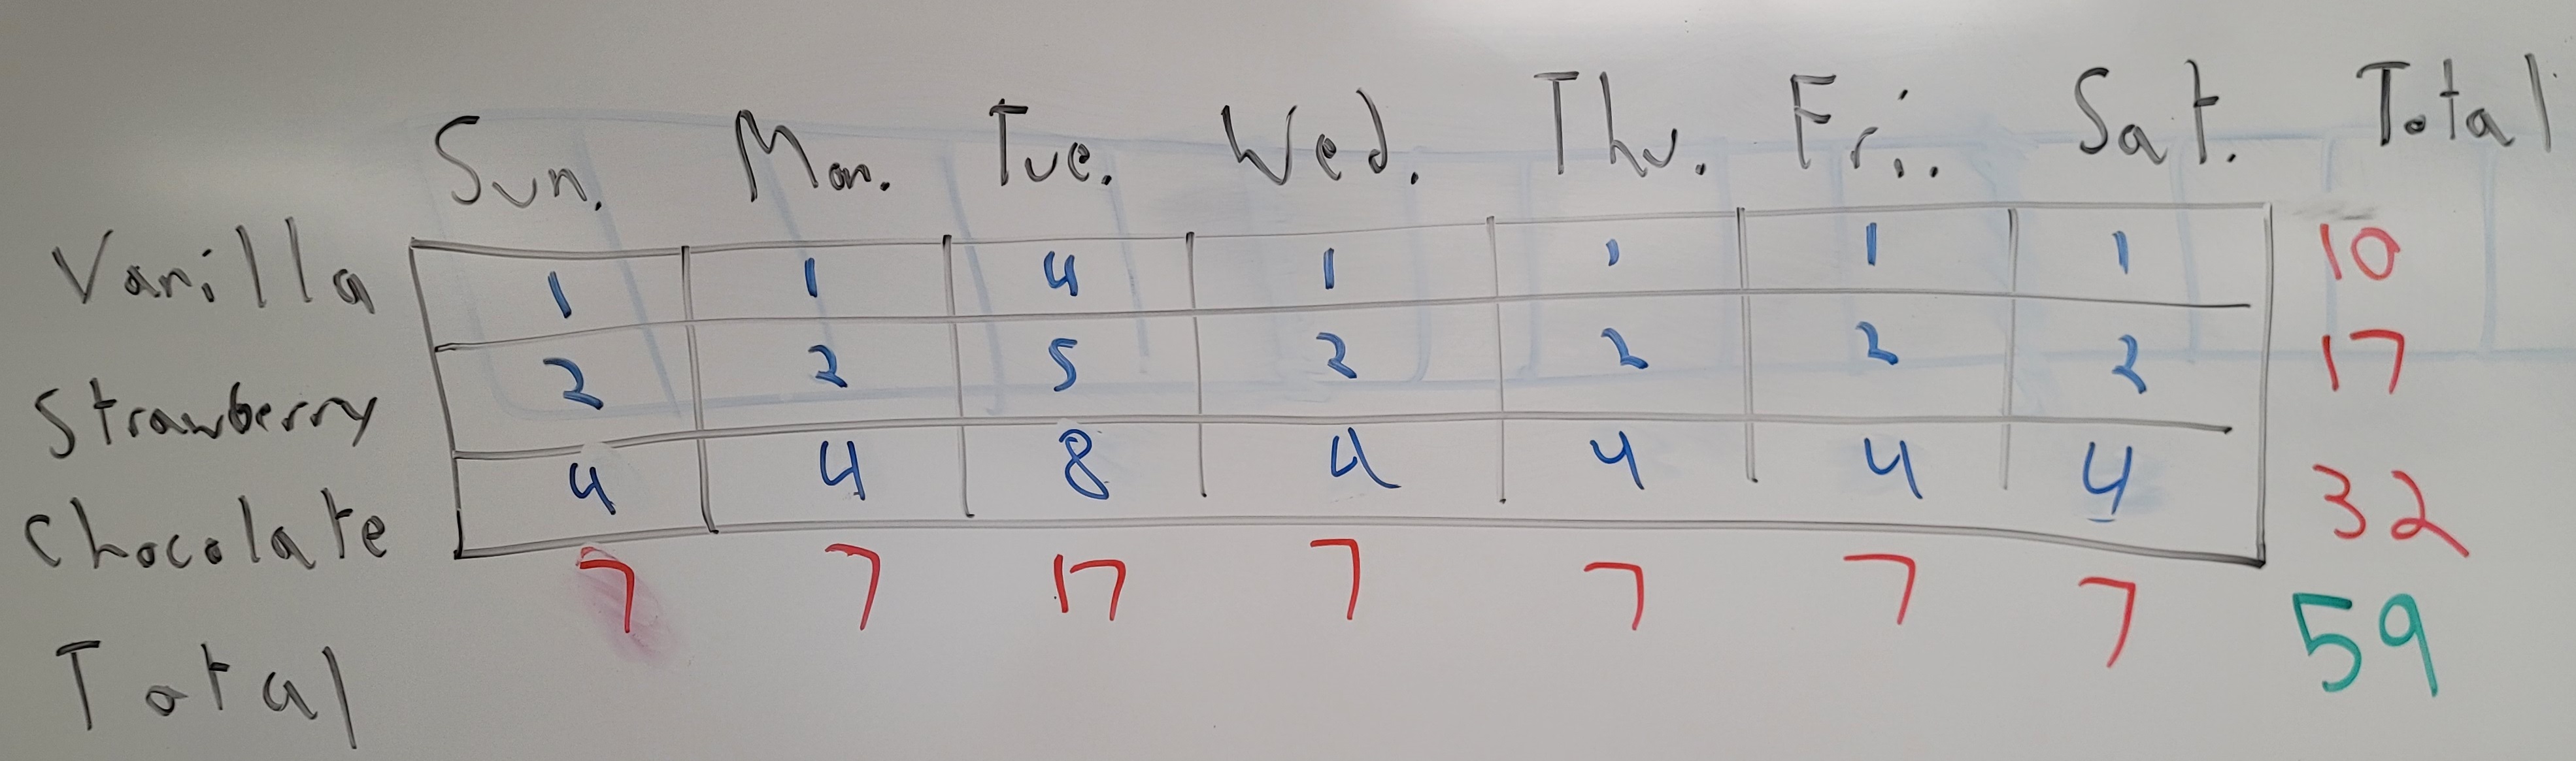 Sun. Mon. Tue. Wed. Thu. Fri. Sat. Total
Vanilla 1 1 4 1 1 1 1 10
Strawberry 2 2 5 2 2 2 2 17
Chocolate 4 4 8 4 4 4 4 32
Total 7 7 17 7 7 7 7 59